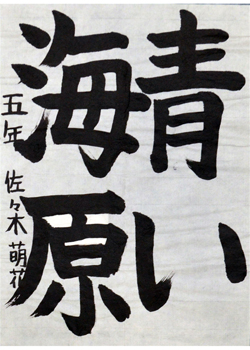 青い
海原
五年 佐々木萌花